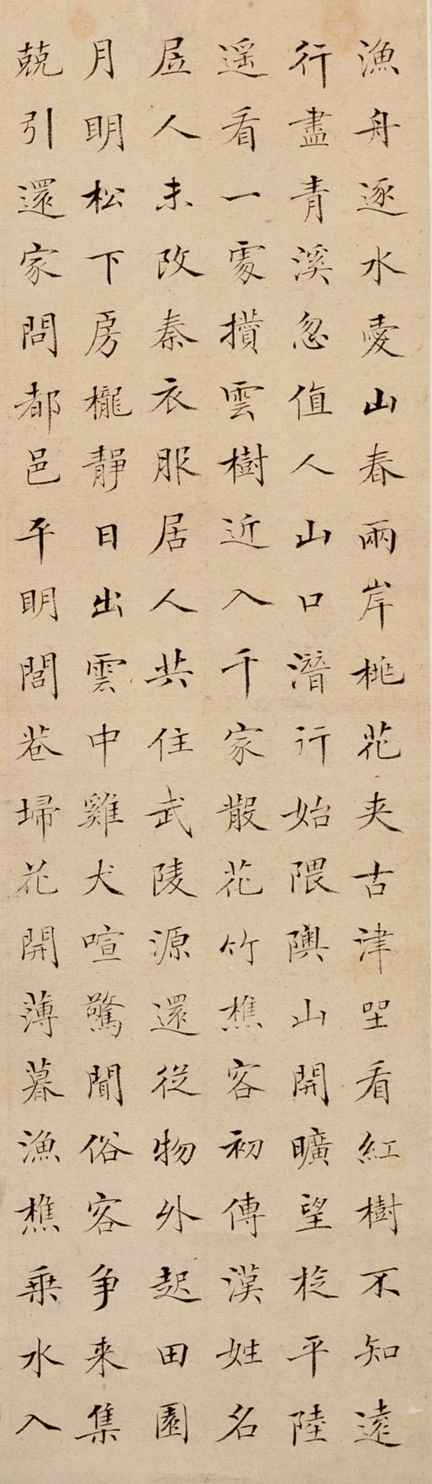 漁舟逐水愛山春兩岸桃花夾古津坐看紅樹不知遠
行盡青溪忽值人山口潛行始隈隩山開曠望旋平陸
遥看一處攢雲樹近入千家散花竹樵客初傳漢姓名
居人未改秦衣服居人共住武陵源還從物外起田園
月明松下房櫳靜日出雲中雞犬喧驚聞俗客争来集
兢引還家問都邑平明閭巷埽花開薄暮漁樵乘水入